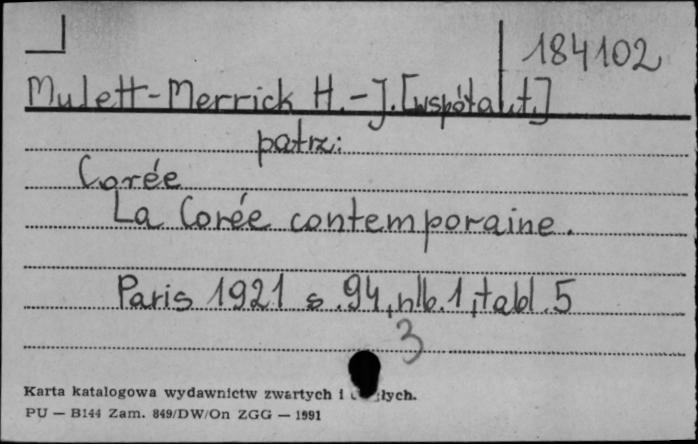 184102
Mulett-Merrick H.-J. [współaut.]
patrz:
Corée
La Corée contemporaine.
Paris 1921 s. 94, nlb. 1, tabl. 5
3
Karta katalogowa wydawnictw zwartych i
PU — B144 Zam. 849/DW/On ZGG — 1991